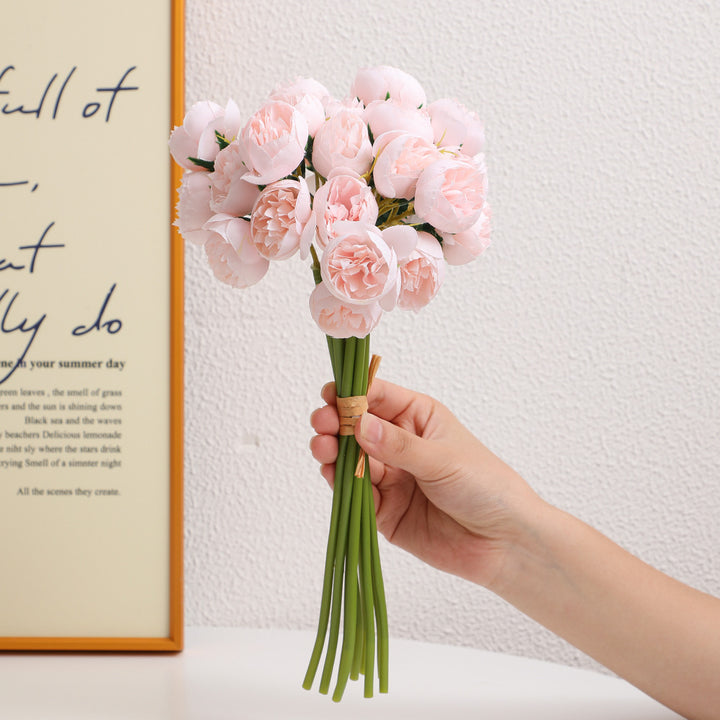 full of
,
at
ly do
ne in your summer day
reen leaves , the smell of grass
ers and the sun is shining down
Black sea and the waves
y beachers Delicious lemonade
e niht sly where the stars drink
rying Smell of a simnter night
All the scenes they create.